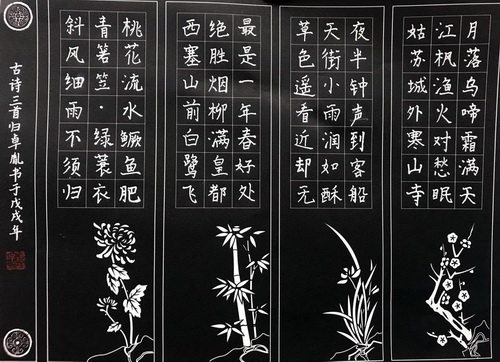 月落乌啼霜满天
江枫渔火对愁眠
姑苏城外寒山寺
夜半钟声到客船
天街小雨润如酥
草色遥看近却无
最是一年春好处
绝胜烟柳满皇都
西塞山前白鹭飞
桃花流水鳜鱼肥
青箬笠·绿蓑衣
斜风细雨不须归
古诗三首归卓胤书于戊戌年